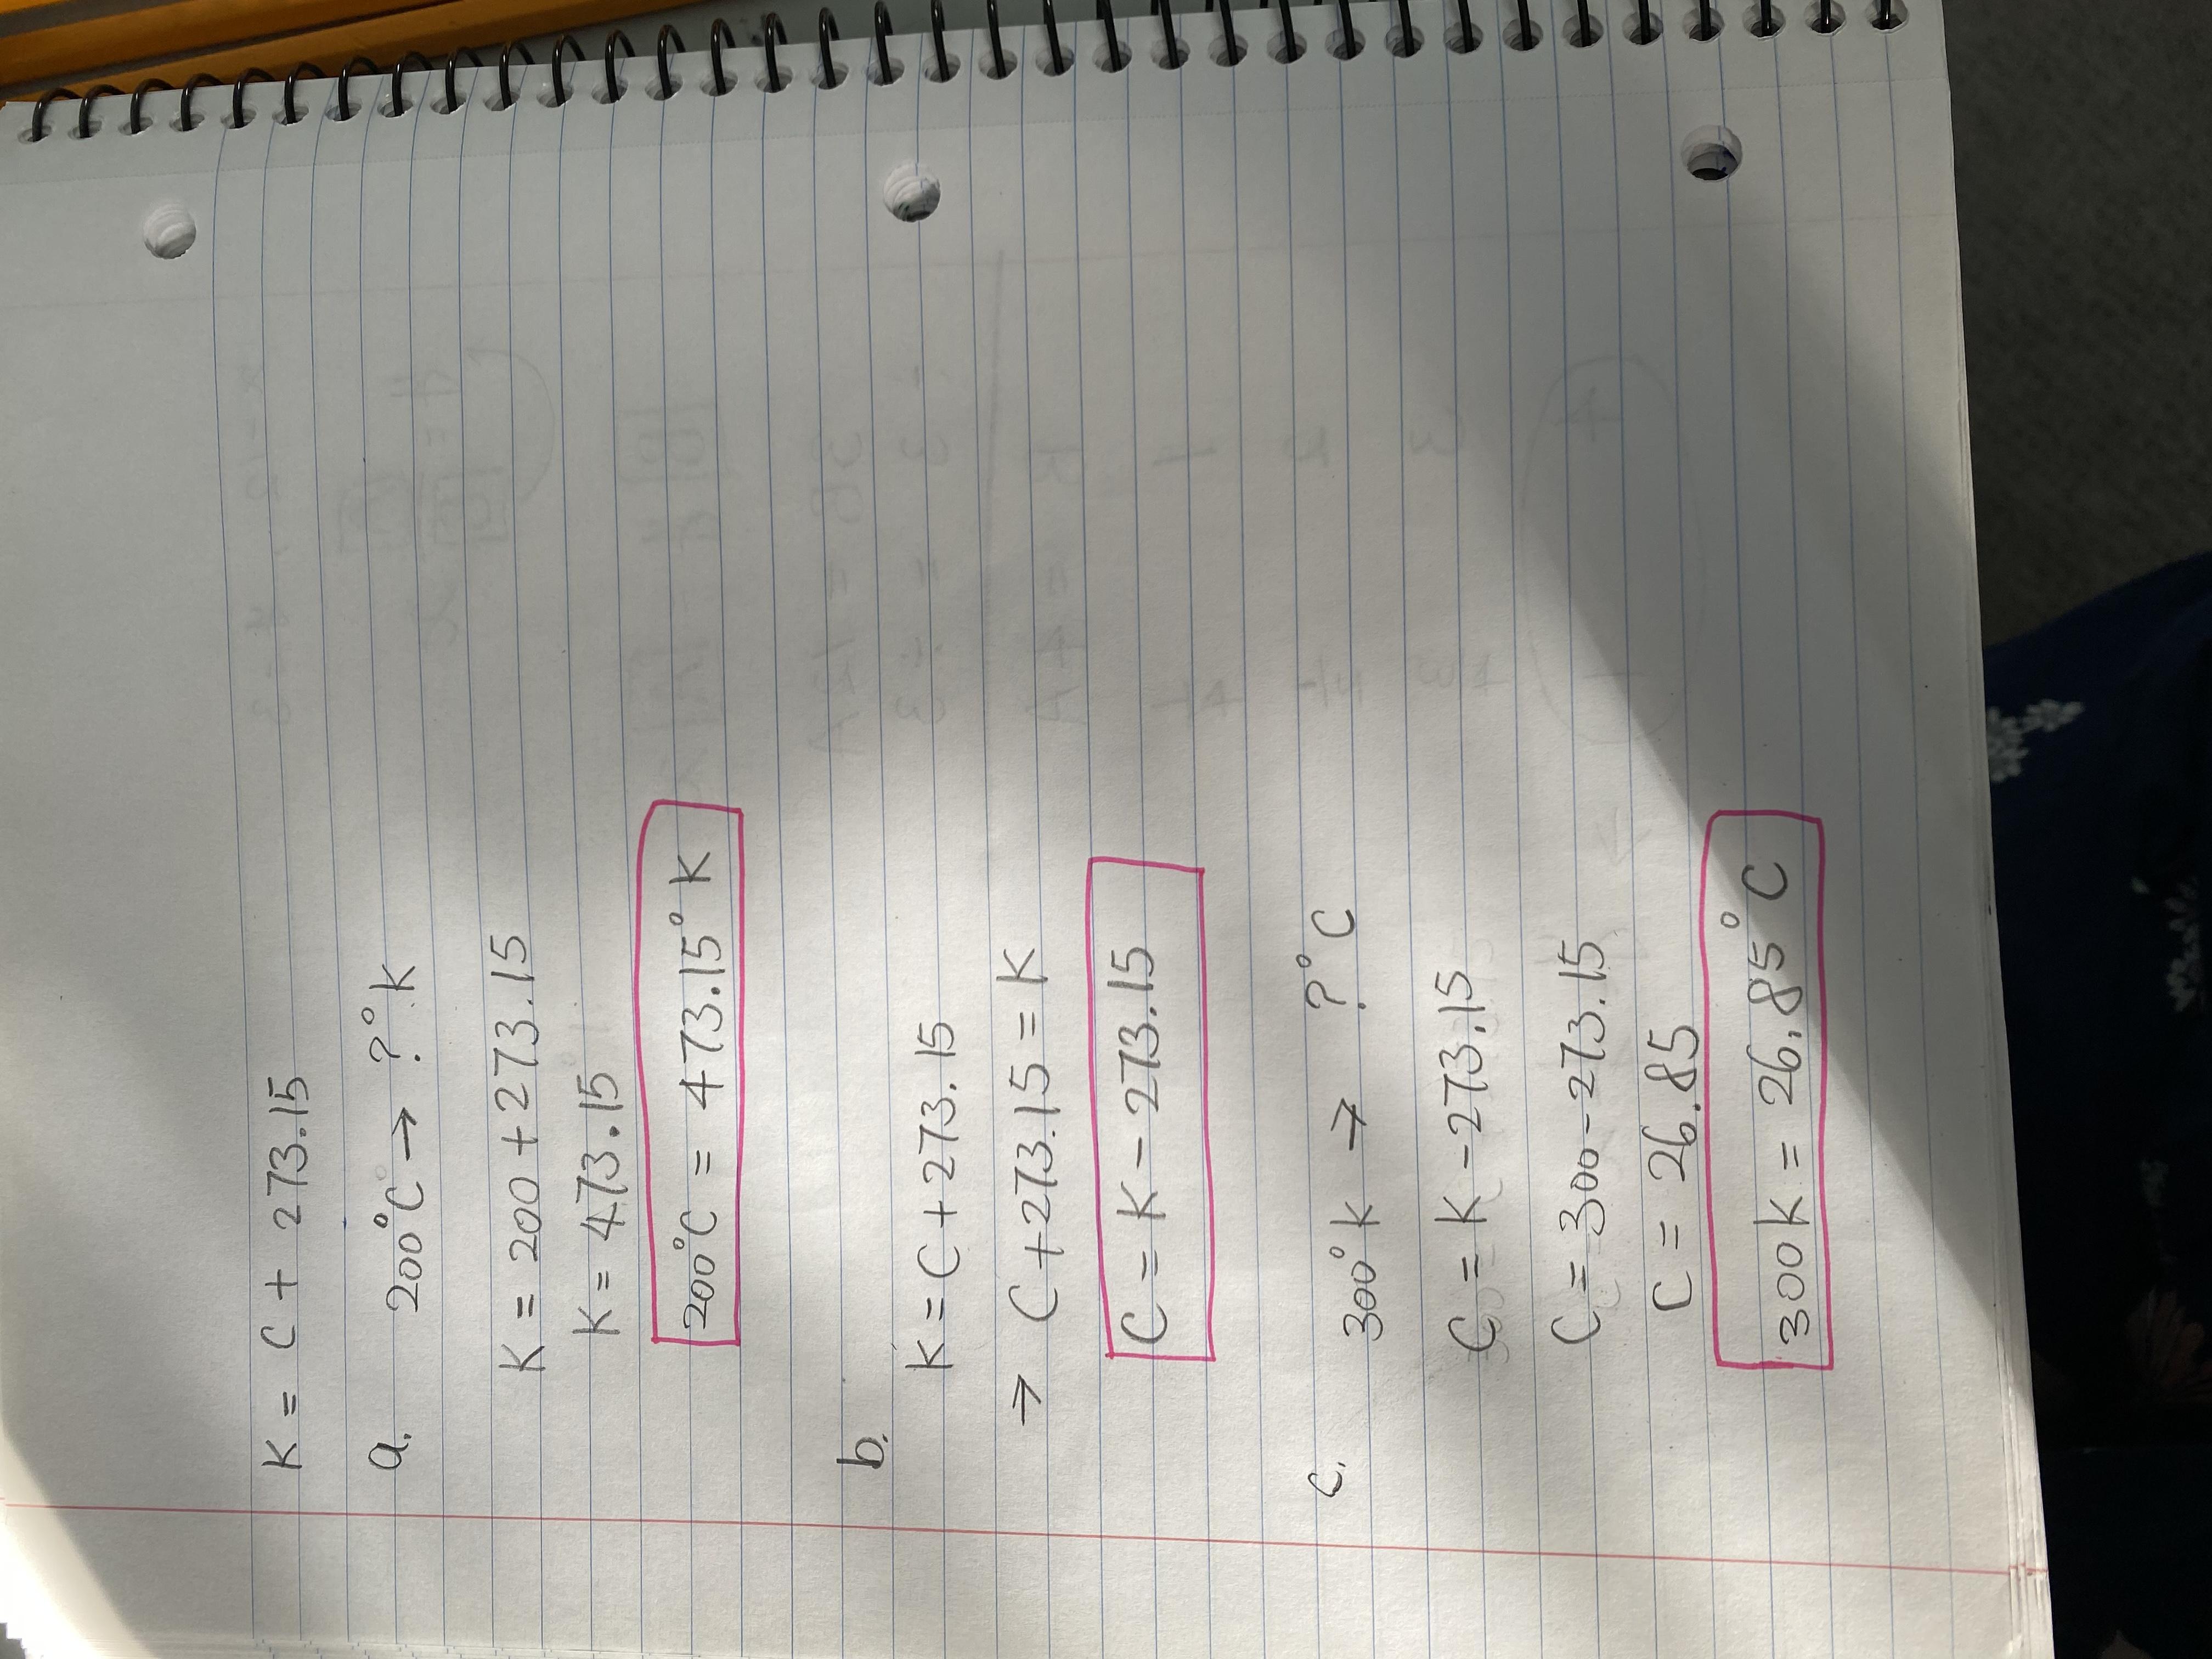 K = C + 273.15
a. 200°C → ?°K
K = 200 + 273.15
K = 473.15
200°C = 473.15°K
b.
K = C + 273.15
→ C + 273.15 = K
C = K - 273.15
c. 300°K → ?°C
C = K - 273.15
C = 300 - 273.15
C = 26.85
300K = 26.85°C